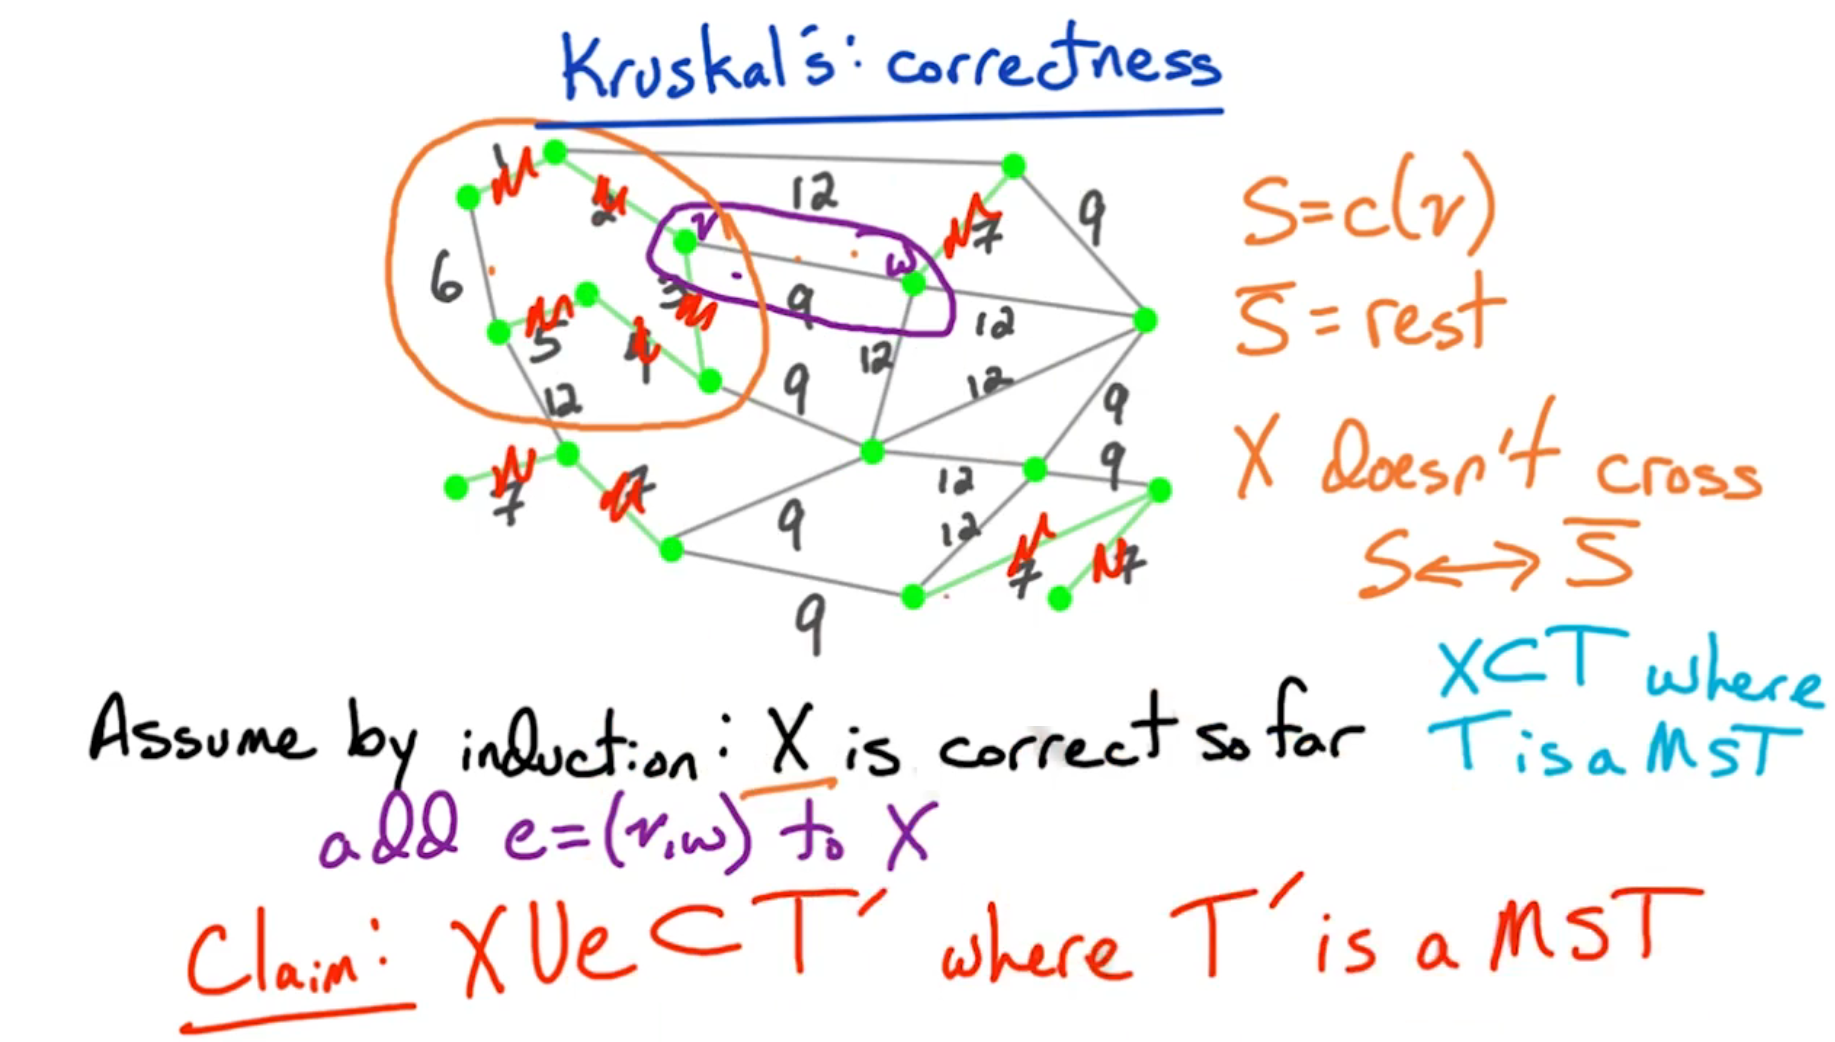 Kruskal's: correctness
1
2
12
v
w
7
9
6
3
9
12
5
4
12
9
12
12
9
7
7
12
9
9
12
7
7
9
S=c(v)
S̅ = rest
X doesn't cross
S↔S̅
Assume by induction: X is correct so far
X⊂T where
T is a MST
add e=(v,w) to X
Claim: X∪e⊂T′ where T′ is a MST